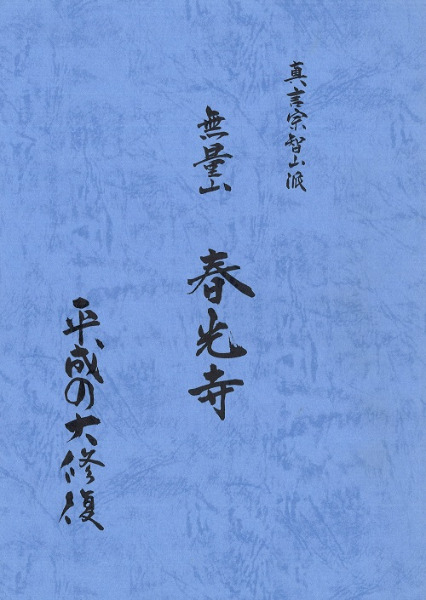 真言宗智山派
無量山 春光寺
平成の大修復